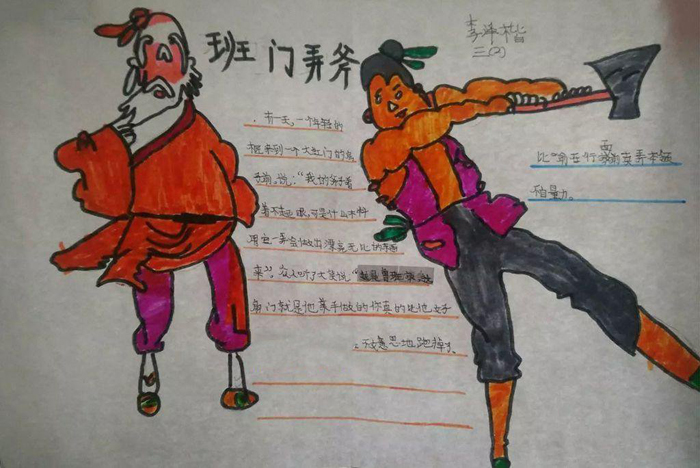 班门弄斧
李泽楷
三(2)
有一天,一个年轻的
木匠来到一个大红门的房
子前,说:“我的斧子
看不起眼,可是什么木料
用它一弄会做出漂亮无比的东西
来”。众人听了大笑说“就是鲁班
身门就是他亲手做的你真的比他好
不好意思地跑掉了。
比喻在行家面前卖弄本领
不自量力。